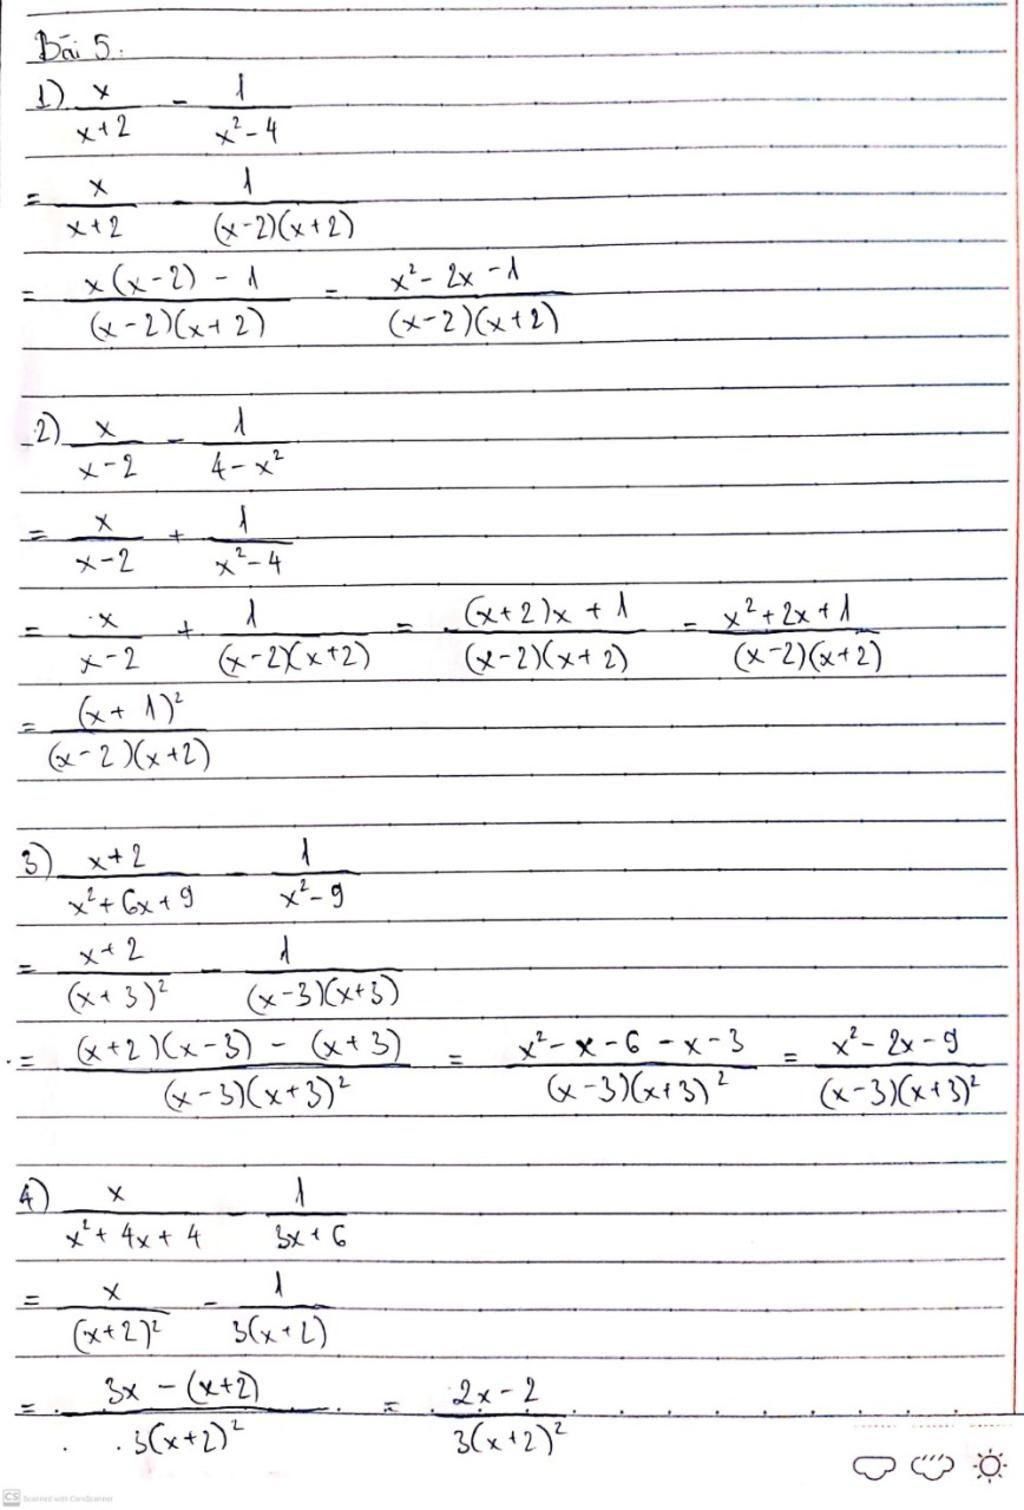 Bài 5:
1) x/(x+2) - 1/(x²-4)
= x/(x+2) - 1/((x-2)(x+2))
= (x(x-2) - 1)/((x-2)(x+2)) = (x² - 2x - 1)/((x-2)(x+2))
2) x/(x-2) - 1/(4-x²)
= x/(x-2) + 1/(x²-4)
= x/(x-2) + 1/((x-2)(x+2)) = ((x+2)x + 1)/((x-2)(x+2)) = (x²+2x+1)/((x-2)(x+2))
= (x+1)²/((x-2)(x+2))
3) (x+2)/(x²+6x+9) - 1/(x²-9)
= (x+2)/(x+3)² - 1/((x-3)(x+3))
= ((x+2)(x-3) - (x+3))/((x-3)(x+3)²) = (x²-x-6-x-3)/((x-3)(x+3)²) = (x²-2x-9)/((x-3)(x+3)²)
4) x/(x²+4x+4) - 1/(3x+6)
= x/(x+2)² - 1/(3(x+2))
= (3x-(x+2))/(3(x+2)²) = (2x-2)/(3(x+2)²)
CS Scanned with CamScanner